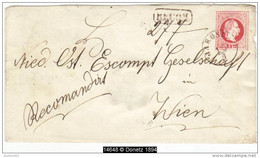 277
Nied. Öst. Escompt Geselschaft
in
Recomandirt
Wien
14648 © Donetz 1894